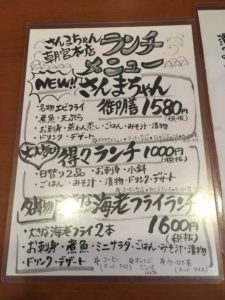 さんまちゃん
朝宮本店
ランチ
メニュー
NEW!! さんまちゃん
御膳 1580円(税抜)
・名物エビフライ
・煮魚・天ぷら
・お刺身・茶わん蒸し・ごはん・みそ汁・漬物
・ドリンク・デザート
得々ランチ 1000円(税抜)
・日替り2品 ・お刺身 ・小鉢
・ごはん・みそ汁・漬物・ドリンク・デザート
海老フライランチ
・大きな海老フライ2本 1600円(税抜)
・お刺身・煮魚・ミニサラダ・ごはん・みそ汁・漬物
・ドリンク・デザート
コーヒー
(ホット アイス)
オレンジ
ジュース
ウーロン茶
(ホット アイス)